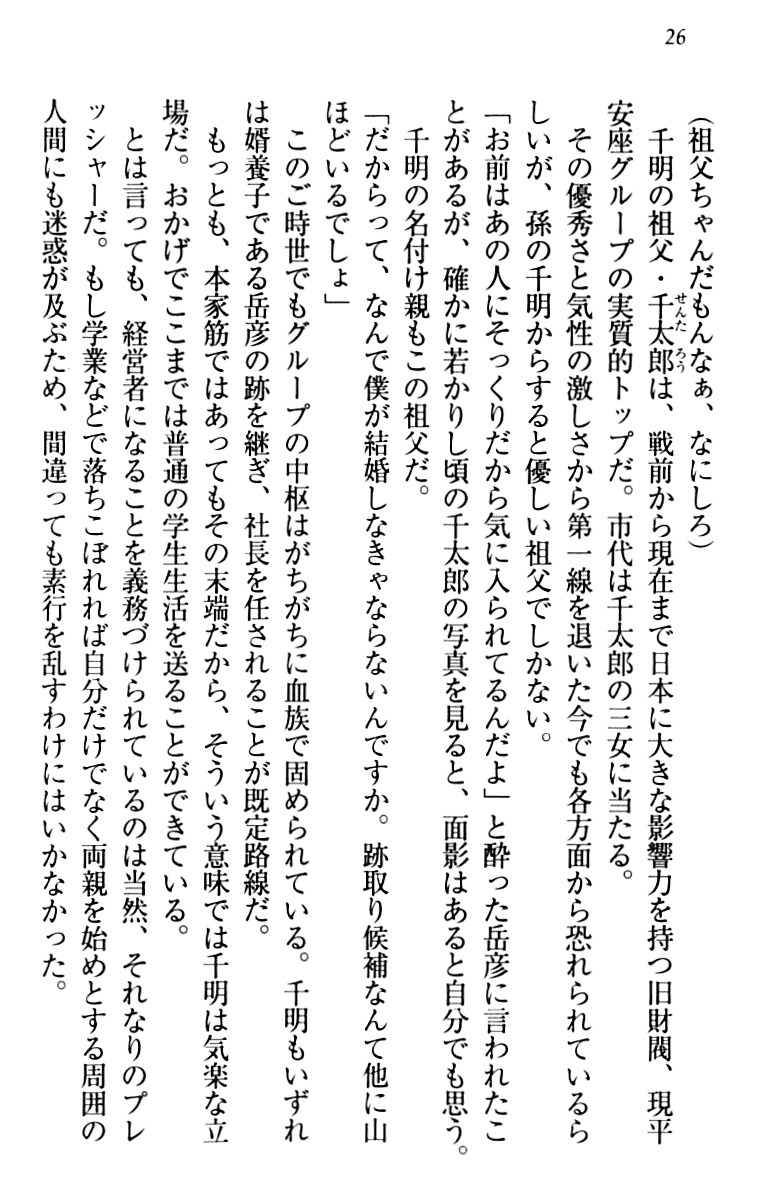 26
(祖父ちゃんだもんなぁ、なにしろ)
千明の祖父・千太郎は、戦前から現在まで日本に大きな影響力を持つ旧財閥、現平
安座グループの実質的トップだ。市代は千太郎の三女に当たる。
その優秀さと気性の激しさから第一線を退いた今でも各方面から恐れられているら
しいが、孫の千明からすると優しい祖父でしかない。
「お前はあの人にそっくりだから気に入られてるんだよ」と酔った岳彦に言われたこ
とがあるが、確かに若かりし頃の千太郎の写真を見ると、面影はあると自分でも思う。
千明の名付け親もこの祖父だ。
「だからって、なんで僕が結婚しなきゃならないんですか。跡取り候補なんて他に山
ほどいるでしょ」
このご時世でもグループの中枢はがちがちに血族で固められている。千明もいずれ
は婿養子である岳彦の跡を継ぎ、社長を任されることが既定路線だ。
もっとも、本家筋ではあってもその末端だから、そういう意味では千明は気楽な立
場だ。おかげでここまでは普通の学生生活を送ることができている。
とは言っても、経営者になることを義務づけられているのは当然、それなりのプレ
ッシャーだ。もし学業などで落ちこぼれれば自分だけでなく両親を始めとする周囲の
人間にも迷惑が及ぶため、間違っても素行を乱すわけにはいかなかった。